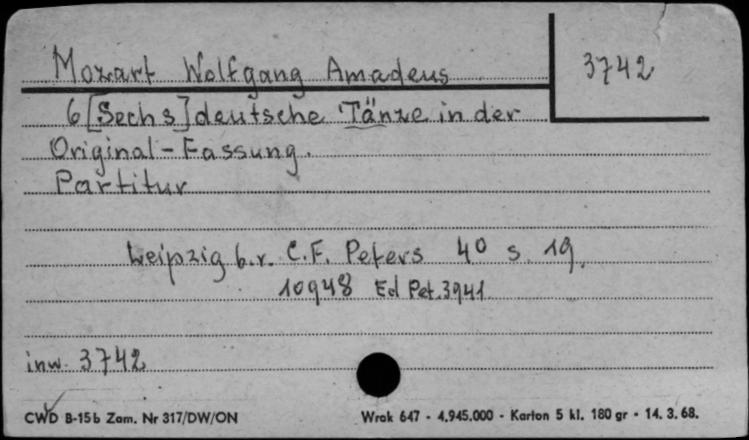 Mozart Wolfgang Amadeus 3742
6 [Sechs] deutsche Tänze in der
Original-Fassung.
Partitur
Leipzig b.r. C.F. Peters 4° s. 19.
10948 Ed Pet.3941
inw. 3742
CWD B-15b Zam. Nr 317/DW/ON Wrok 647 - 4.945.000 - Karton 5 kl. 180 gr - 14. 3. 68.